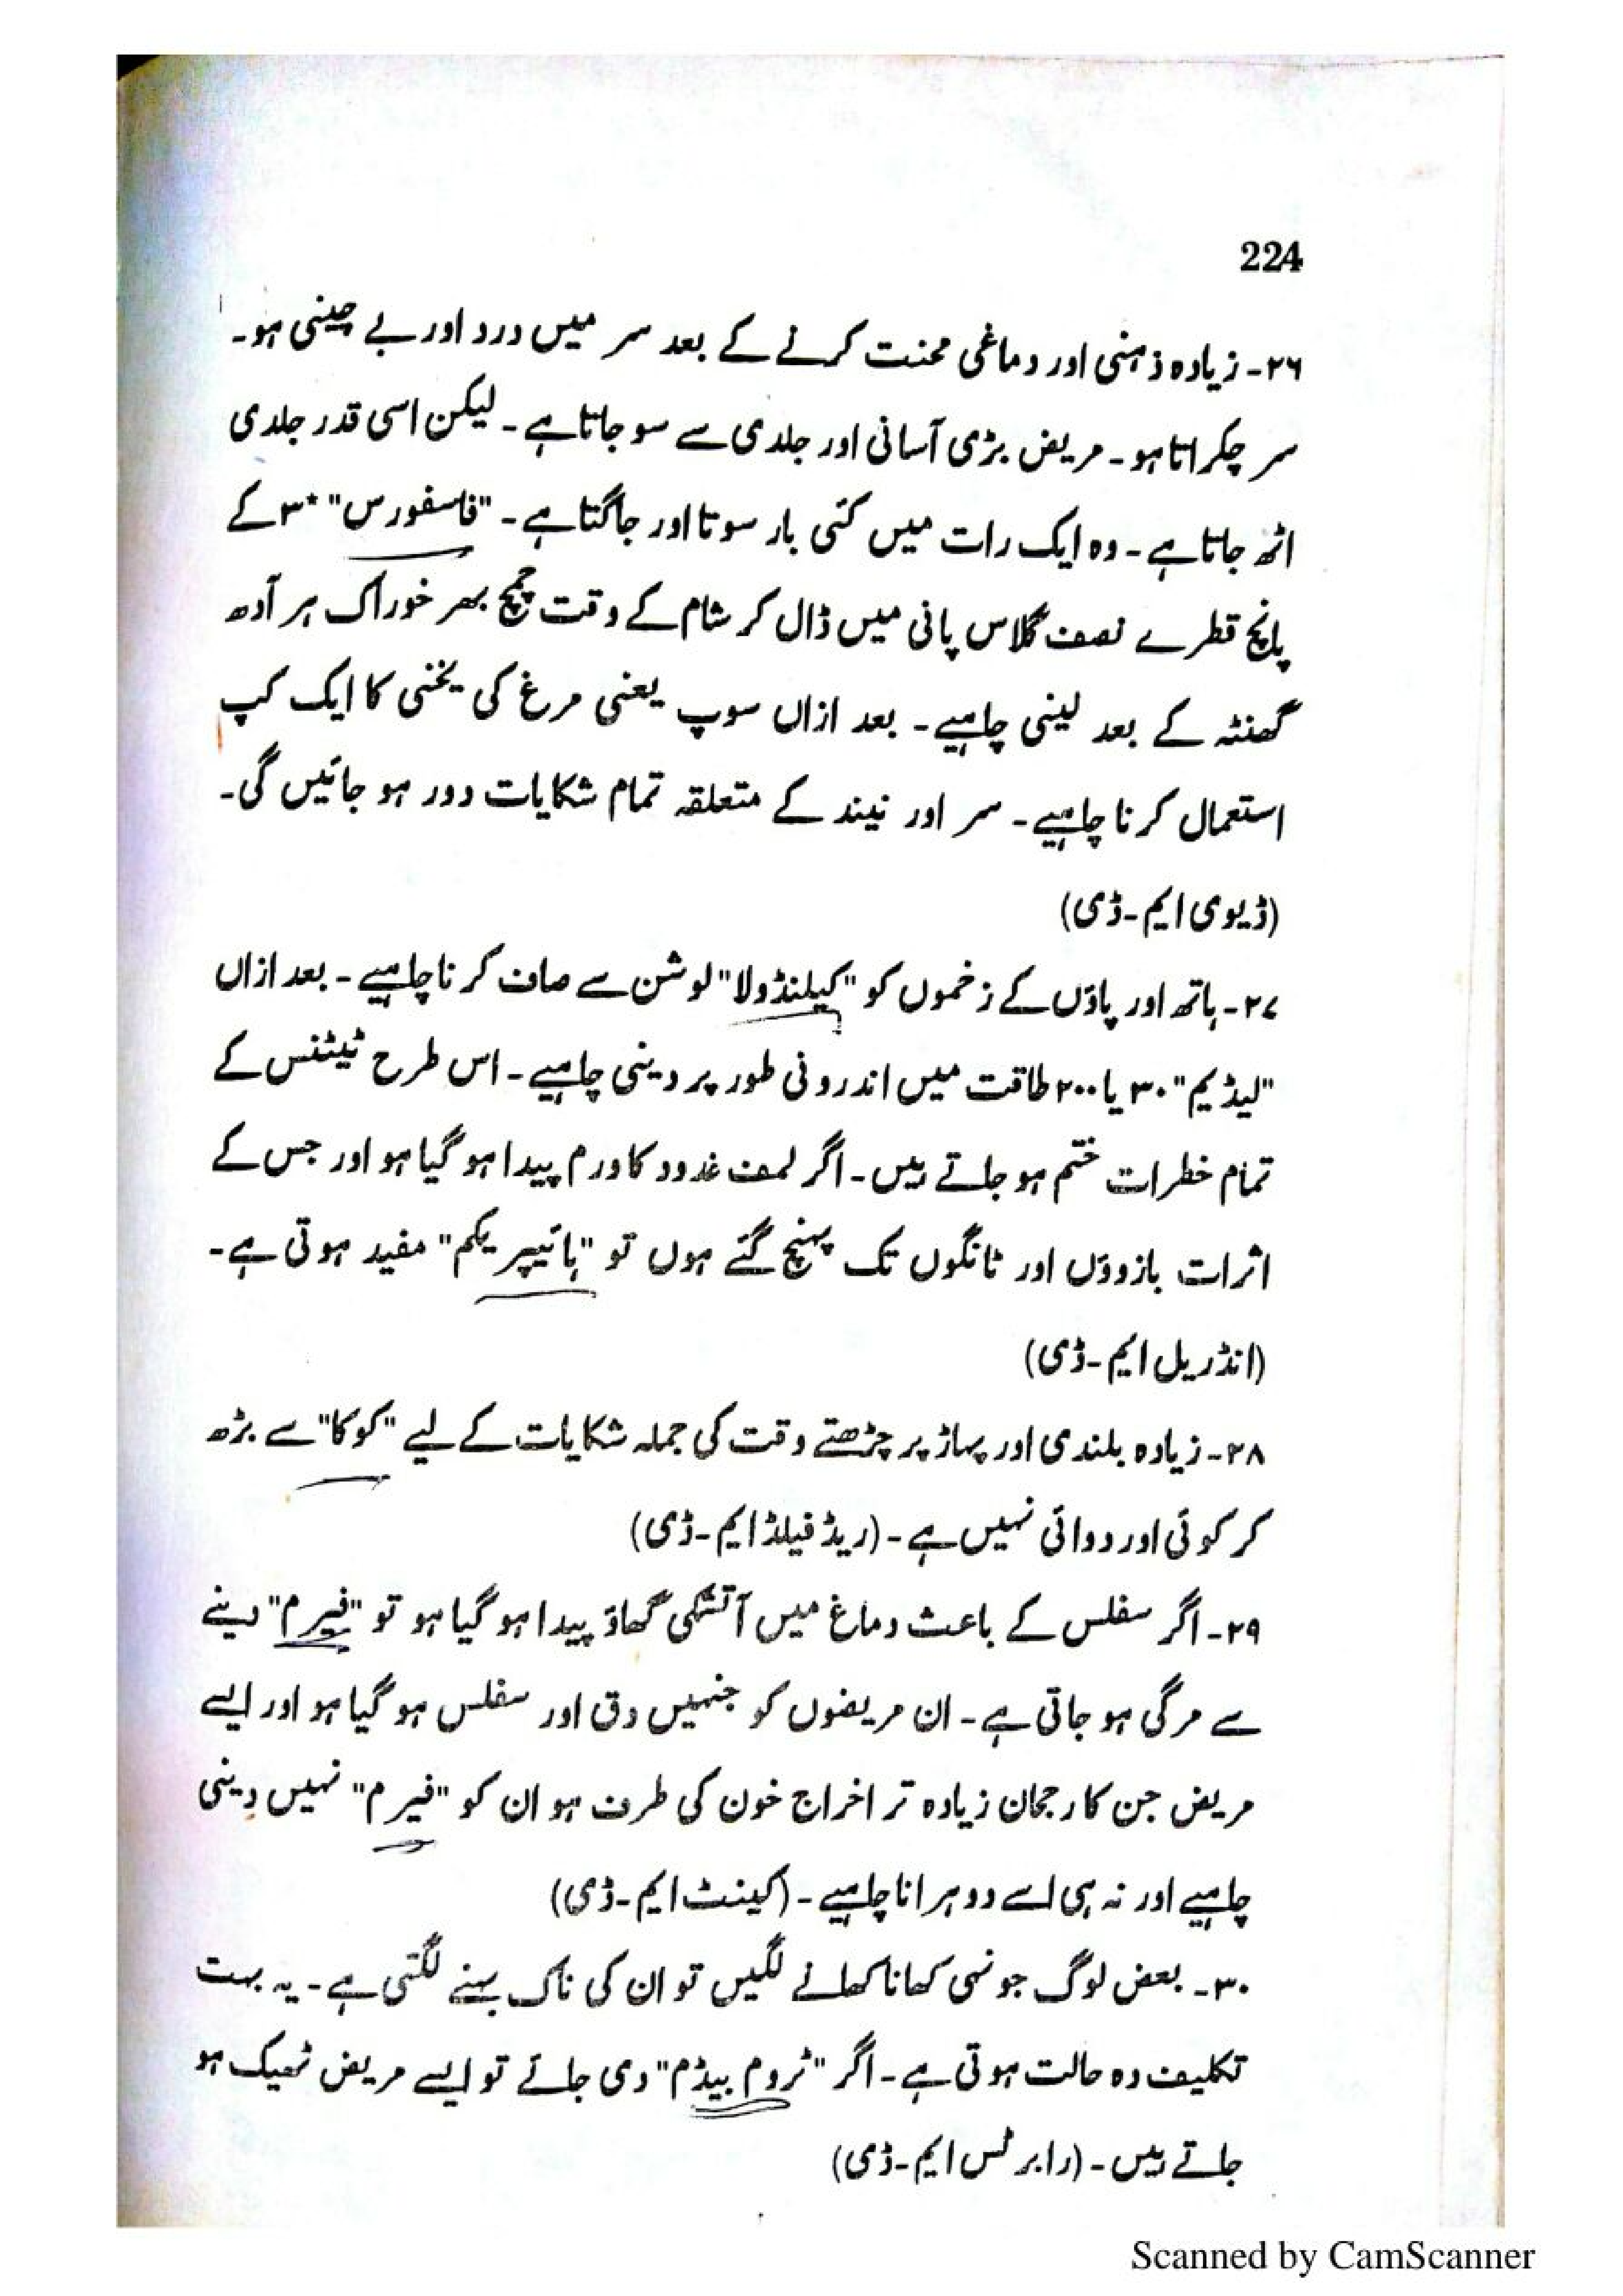 224
۲۶- زیادہ ذہنی اور دماغی محنت کرنے کے بعد سر میں درد اور بے چینی ہو۔
سر چکراتا ہو۔ مریض بڑی آسانی اور جلدی سے سو جاتا ہے۔ لیکن اسی قدر جلدی
اٹھ جاتا ہے۔ وہ ایک رات میں کئی بار سوتا اور جاگتا ہے۔ "فاسفورس" ۳* کے
پانچ قطرے نصف گلاس پانی میں ڈال کر شام کے وقت چمچ بھر خوراک ہر آدھ
گھنٹہ کے بعد لینی چاہیے۔ بعد ازاں سوپ یعنی مرغ کی یخنی کا ایک کپ
استعمال کرنا چاہیے۔ سر اور نیند کے متعلقہ تمام شکایات دور ہو جائیں گی۔
(ڈیوی ایم-ڈی)
۲۷- ہاتھ اور پاؤں کے زخموں کو "کیلنڈولا" لوشن سے صاف کرنا چاہیے۔ بعد ازاں
"لیڈیم" ۳۰ یا ۲۰۰ طاقت میں اندرونی طور پر دینی چاہیے۔ اس طرح ٹیٹنس کے
تمام خطرات ختم ہو جاتے ہیں۔ اگر لمف غدود کا ورم پیدا ہو گیا ہو اور جس کے
اثرات بازوؤں اور ٹانگوں تک پہنچ گئے ہوں تو "ہائیپریکم" مفید ہوتی ہے۔
(انڈریل ایم-ڈی)
۲۸- زیادہ بلندی اور پہاڑ پر چڑھتے وقت کی جملہ شکایات کے لیے "کوکا" سے بڑھ
کر کوئی اور دوائی نہیں ہے۔ (ریڈ فیلڈ ایم-ڈی)
۲۹- اگر سفلس کے باعث دماغ میں آتشکی گھاؤ پیدا ہو گیا ہو تو "فیرم" دینے
سے مرگی ہو جاتی ہے۔ ان مریضوں کو جنہیں دق اور سفلس ہو گیا ہو اور ایسے
مریض جن کا رجحان زیادہ تر اخراج خون کی طرف ہو ان کو "فیرم" نہیں دینی
چاہیے اور نہ ہی اسے دوہرانا چاہیے۔ (کینٹ ایم-ڈی)
۳۰- بعض لوگ جونہی کھانا کھانے لگیں تو ان کی ناک بہنے لگتی ہے۔ یہ بہت
تکلیف دہ حالت ہوتی ہے۔ اگر "ٹروم بیڈم" دی جائے تو ایسے مریض ٹھیک ہو
جاتے ہیں۔ (رابرٹس ایم-ڈی)
Scanned by CamScanner